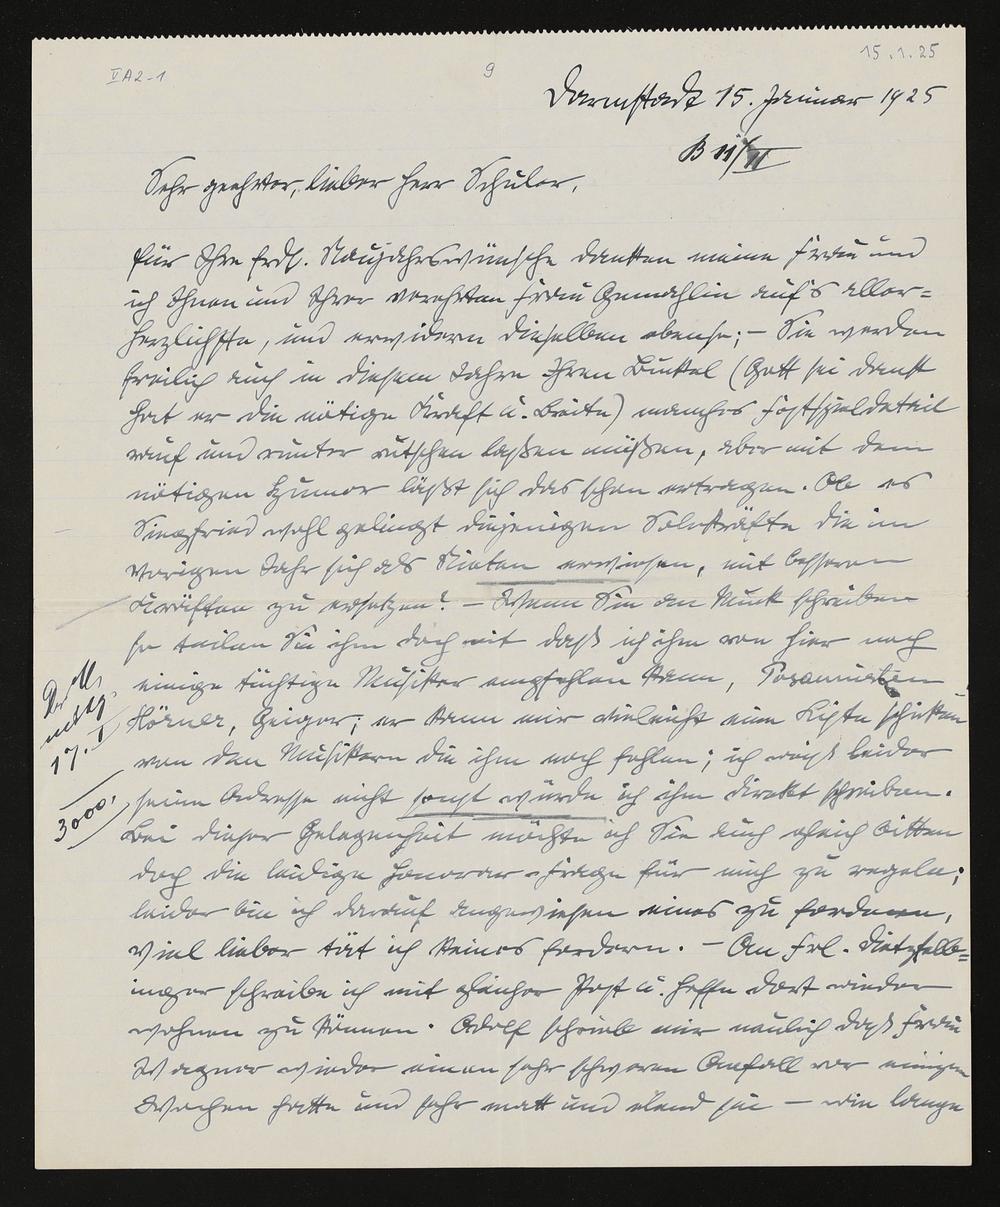 VA2-1
9
15.1.25
Darmstadt 15. Januar 1925
B 11/II
Sehr geehrter, lieber Herr Schuler,
für Ihre frdl. Neujahrswünsche danken meine Frau und
ich Ihnen und Ihrer verehrten Frau Gemahlin auf's aller=
herzlichste, und erwidern dieselben ebenso; – Sie werden
freilich auch in diesem Jahre Ihren Buckel (Gott sei dank
hat er die nötige Kraft u. Breite) manches Festspieldetail
rauf und runter rutschen laßen müßen, aber mit dem
nötigen Humor läßt sich das schon ertragen. Ob es
Siegfried wohl gelingt diejenigen Solokräfte die im
vorigen Jahr sich als Nieten erwiesen, mit besseren
Kräften zu ersetzen? – Wenn Sie an Muck schreiben
so teilen Sie ihm doch mit daß ich ihm von hier noch
einige tüchtige Musiker empfehlen kann, Posaunisten
Hörner, Geiger; er kann mir vielleicht eine Liste schicken
von den Musikern die ihm noch fehlen; ich weiß leider
seine Adresse nicht sonst würde ich ihm direkt schreiben.
Bei dieser Gelegenheit möchte ich Sie auch gleich bitten
doch die leidige Honorar-Frage für mich zu regeln;
leider bin ich darauf angewiesen eines zu fordern,
viel lieber tät ich keines fordern. – An Frl. Dietzfelb=
inger schreibe ich mit gleicher Post u. hoffe dort wieder
wohnen zu können. Adolf schrieb mir neulich daß Frau
Wagner wieder einen sehr schweren Anfall vor einigen
Wochen hatte und sehr matt und elend sei – wie lange
Dr M.
17. I
3000,